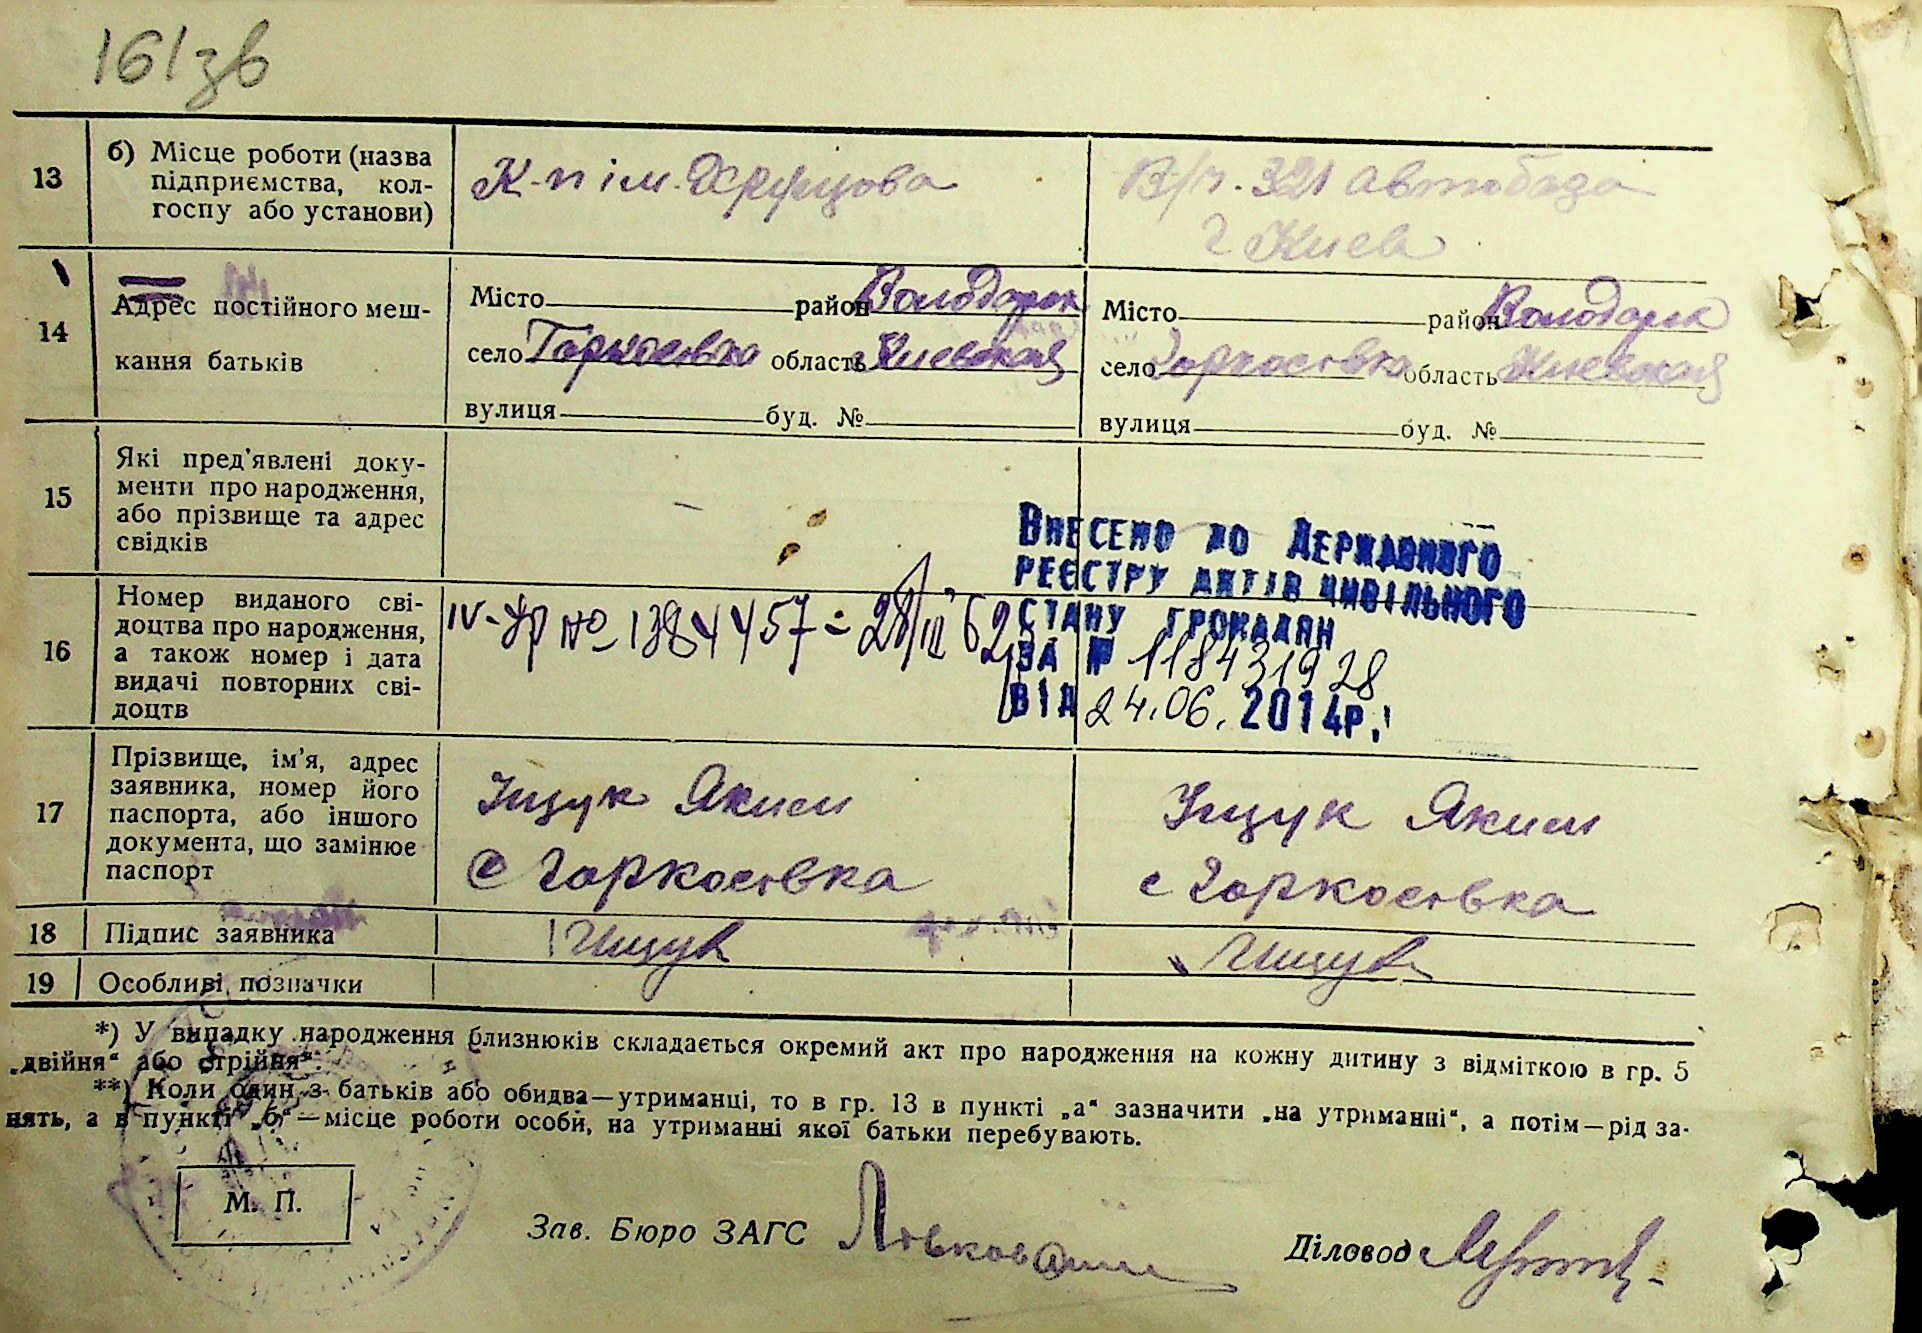 161зв
13
б) Місце роботи (назва
підприємства, кол-
госпу або установи)
К-п ім.
В/ч. 321 автобаза
г Киев
14
Адрес постійного меш-
кання батьків
Місто район Володарк
село Гаркосовка область Киевская
вулиця буд. №
Місто район Володарк
село Гаркосовка область Киевская
вулиця буд. №
15
Які пред'явлені доку-
менти про народження,
або прізвище та адрес
свідків
16
Номер виданого сві-
доцтва про народження,
а також номер і дата
видачі повторних сві-
доцтв
IV-УР № 1384457 = 28/III 62
Внесено до Державного
реєстру актів цивільного
стану громадян
за № 118431928
від 24.06.2014р.
17
Прізвище, ім'я, адрес
заявника, номер його
паспорта, або іншого
документа, що замінює
паспорт
Ищук Яким
с Гаркосовка
Ищук Яким
с Гаркосовка
18
Підпис заявника
Ищук
Ищук
19
Особливі позначки
*) У випадку народження близнюків складається окремий акт про народження на кожну дитину з відміткою в гр. 5
„двійня“ або „трійня“.
**) Коли один з батьків або обидва—утриманці, то в гр. 13 в пункті „а“ зазначити „на утриманні“, а потім—рід за-
нять, а в пункті „б“—місце роботи особи, на утриманні якої батьки перебувають.
М. П.
Зав. Бюро ЗАГС
Діловод